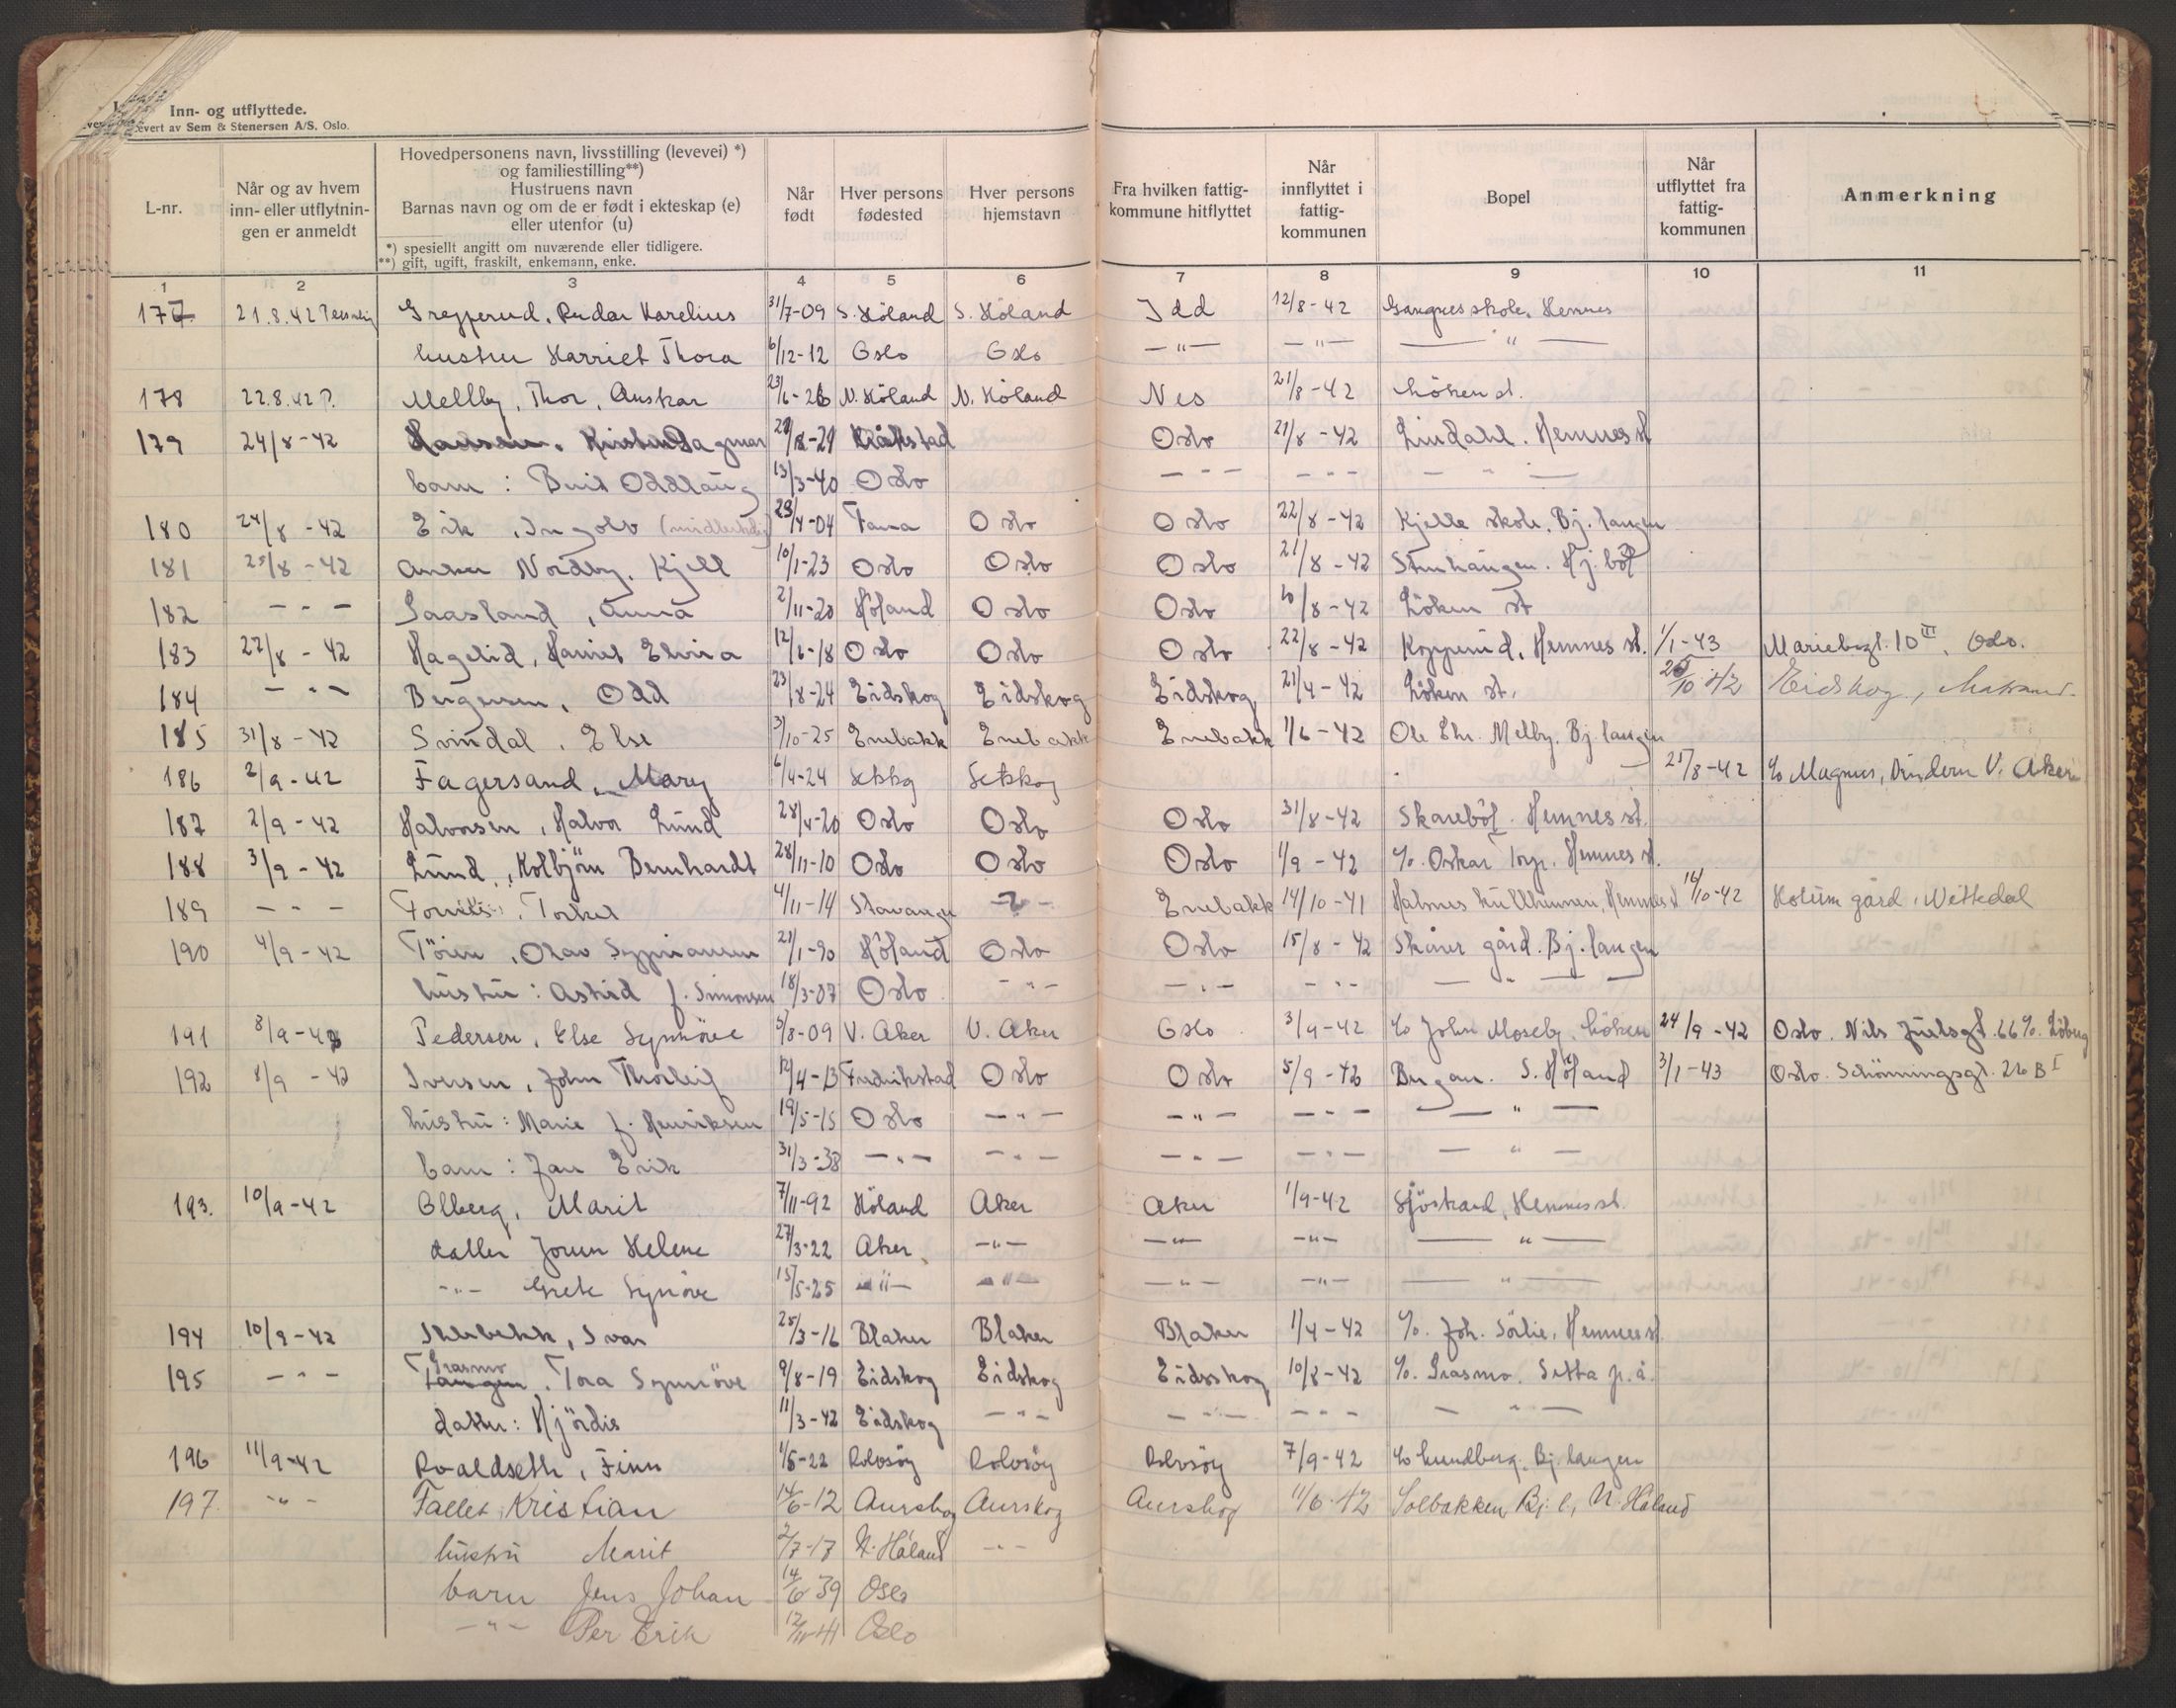 Inn- og utflyttede.
evert av Sem & Stenersen A/S. Oslo.
L-nr. | Når og av hvem inn- eller utflytnin- gen er anmeldt | Hovedpersonens navn, livsstilling (levevei) *) og familiestilling**) Hustruens navn Barnas navn og om de er født i ekteskap (e) eller utenfor (u) *) spesielt angitt om nuværende eller tidligere. **) gift, ugift, fraskilt, enkemann, enke. | Når født | Hver persons fødested | Hver persons hjemstavn | Fra hvilken fattig- kommune hitflyttet | Når innflyttet i fattig- kommunen | Bopel | Når utflyttet fra fattig- kommunen | Anmerkning
1 2 3 4 5 6 7 8 9 10 11
177 21.8.42 Personlig Grepperud, Reidar Karelius 31/7-09 S. Höland S. Höland Idd 12/8-42 skole, Hemnes
hustru Harriet Thora 6/12-12 Oslo Oslo -"- -"- -"-
178 22.8.42 P. Mellby, Thor, Anskar 23/6-26 N. Höland N. Höland Nes 21/8-42 Löken st.
179 24/8-42 Hansen, Kirsten Dagmar 29/8-29 Kråkstad Oslo 21/8-42 Lindahl. Hemnes st
barn: Berit Oddlaug 13/3-40 Oslo -"- -"- -"-
180 24/8-42 Eik, Ingolv (midlertidig) 23/4-04 Fana Oslo Oslo 22/8-42 Kjelle skole. Bj. langen
181 25/8-42 Anker Nordby, Kjell 10/1-23 Oslo Oslo Oslo 21/8-42 Stenhaugen. Hj. böl
182 -"- Gaasland, Anna 2/11-20 Höland Oslo Oslo /8-42 Löken st
183 22/8-42 Hagelid, Harriet Elvira 12/6-18 Oslo Oslo Oslo 22/8-42 Kopperud, Hemnes st. 1/1-43 10 III, Oslo.
184 -"- Bergersen, Odd 23/8-24 Eidskog Eidskog Eidskog 21/4-42 Löken st. /10 42 Eidskog, Matrand.
185 31/8-42 Svindal, Else 3/10-25 Enebakk Enebakk Enebakk 1/6-42 Ole Chr. Melby. Bj. langen
186 2/9-42 Fagersand, Mary 6/4-24 Setskog Setskog 25/8-42 c/o Magnus, Vindern V. Aker
187 2/9-42 Halvorsen, Halvor Lund 28/4-20 Oslo Oslo Oslo 31/8-42 Skareböl. Hemnes st.
188 3/9-42 Lund, Kolbjörn Bernhardt 28/11-10 Oslo Oslo Oslo 1/9-42 c/o. Oskar Torp, Hemnes st.
189 -"- Torkel 4/11-14 Stavanger -?- Enebakk 14/10-41 Hemnes st 14/10-42 Holum gård, Nittedal
190 4/9-42 Olav 21/1-90 Höland Oslo Oslo 15/8-42 Skårer gård. Bj. langen
hustru: Astrid f. Simonsen 18/3-07 Oslo -"- -"- -"- -"-
191 8/9-42 Pedersen, Else Synnöve 5/8-09 V. Aker V. Aker Oslo 3/9-42 c/o John Moseby, Löken 24/9-42 Oslo. Nils Juelsgt. 66 c/o. Löberg
192 8/9-42 Iversen, John Thorleif 12/4-13 Fredrikstad Oslo Oslo 5/9-42 Bergan. S. Höland 3/1-43 Oslo. Schönningsgt. 26 B I
hustru: Marie f. Henriksen 19/5-15 Oslo -"- -"- -"- -"-
barn: Jan Erik 31/3-38 -"- -"- -"- -"- -"-
193. 10/9-42 Olberg, Marit 7/11-92 Höland Aker Aker 1/9-42 Sjöstrand, Hemnes st.
datter Jorun Helene 27/3-22 Aker -"- -"- -"- -"-
-"- Grete Synöve 15/5-25 -"- -"- -"- -"- -"-
194 10/9-42 Ivar 25/3-16 Blaker Blaker Blaker 1/4-42 c/o. Joh. Sörlie, Hemnes st.
195 -"- Grasmo Tangen, Tora Synnöve 9/8-19 Eidskog Eidskog Eidsskog 10/8-42 c/o. Grasmo. Setta p. å.
datter: Hjördis 11/3-42 Eidskog -"- -"- -"- -"-
196 11/9-42 Roaldseth, Finn 1/5-22 Rolvsöy Rolvsöy Rolvsöy 7/9-42 c/o Lundberg, Bj. langen
197. -"- Fallet Kristian 14/6-12 Aurskog Aurskog Aurskog 11/6-42 Solbakken, Bj. l., N. Höland
hustru Marit 2/7-17 N. Höland -"-
barn Jens Johan 14/6 39 Oslo
-"- Per Erik 12/11-41 Oslo